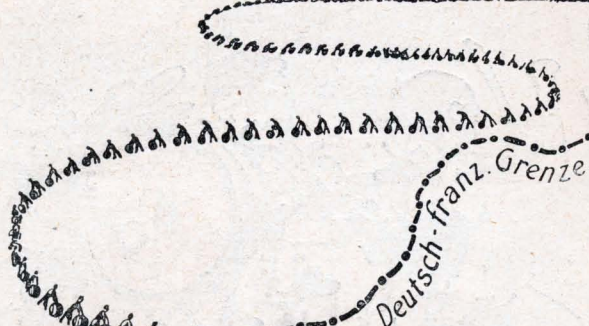 Deutsch-franz. Grenze